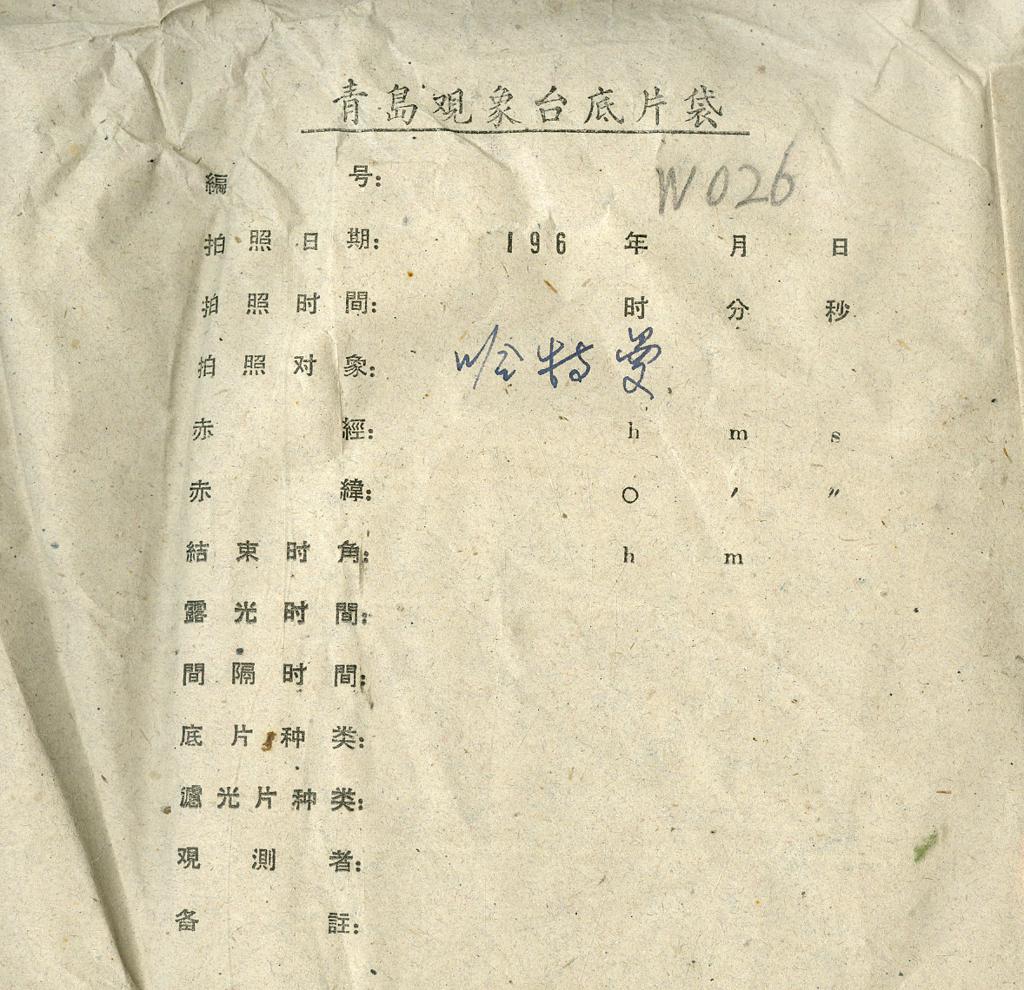 青島观象台底片袋
編号: W026
拍照日期: 196 年 月 日
拍照时間: 时 分 秒
拍照对象: 哈特曼
赤經: h m s
赤緯: ○ ′ ″
結束时角: h m
露光时間:
間隔时間:
底片种类:
濾光片种类:
观測者:
备註: